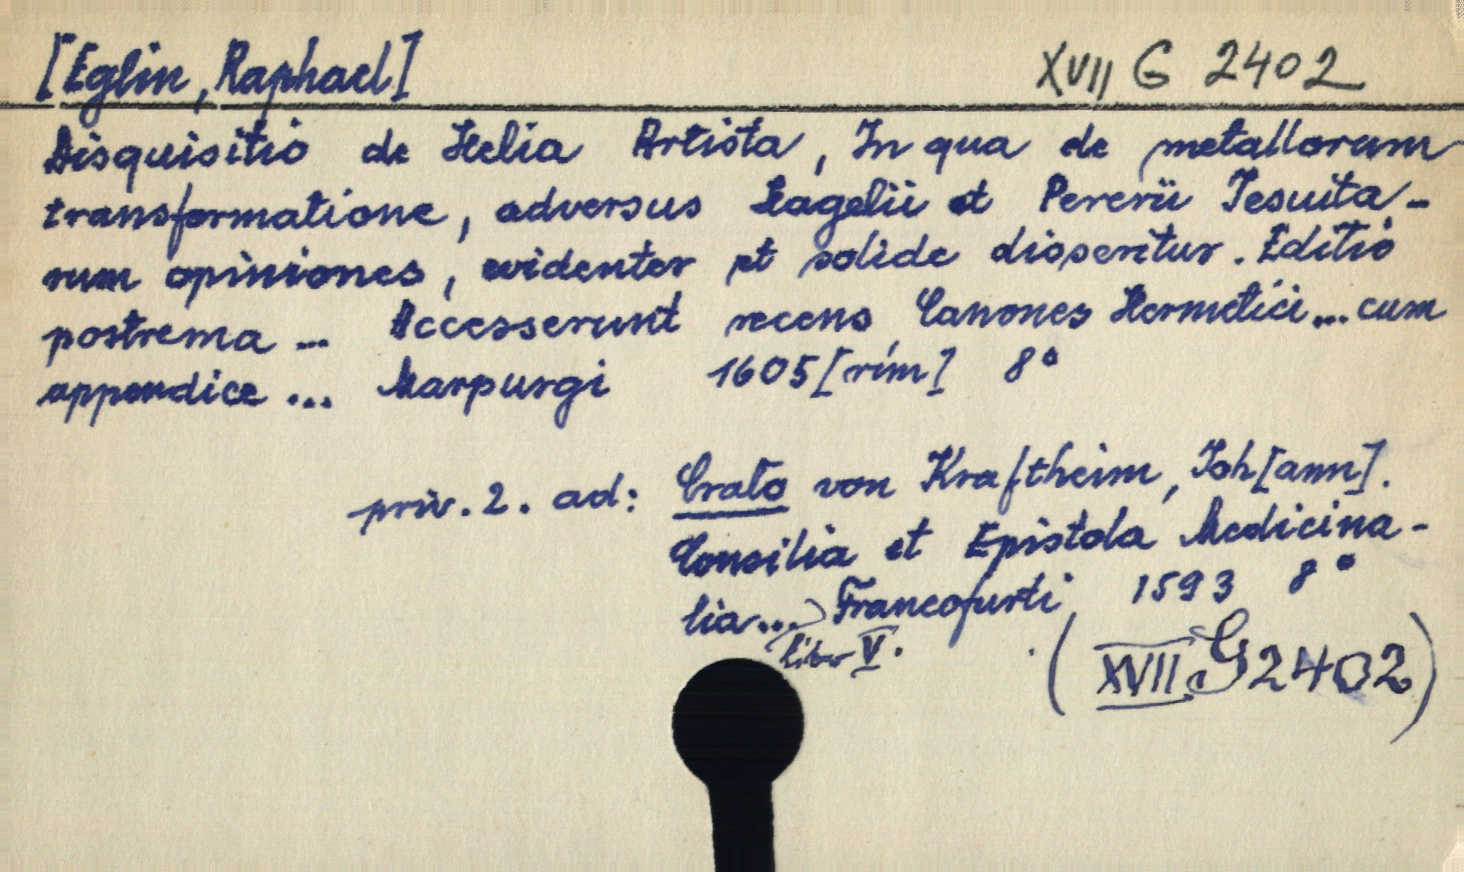 [Eglin, Raphael] XVII G 2402
Disquisitio de Helia Artista, In qua de metallorum
transformatione, adversus Hagelii et Pererii Jesuita-
rum opiniones, evidenter et solide disseritur. Editio
postrema ... Accesserunt recens Canones Hermetici... cum
appendice ... Marpurgi 1605 [rim] 8°
priv. 2. ad: Crato von Kraftheim, Joh[ann].
Consilia et Epistola Medicina-
lia... Francofurti 1593 8°
liber V.
(XVII G 2402)